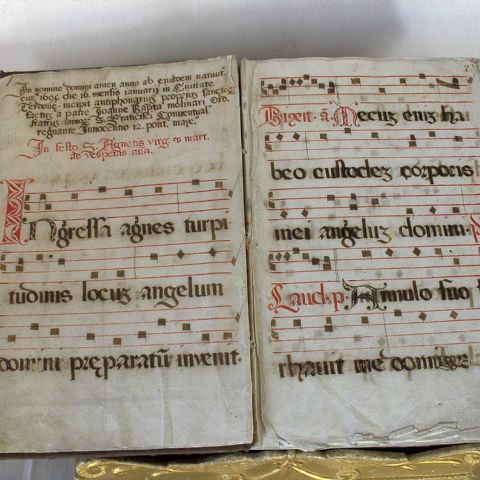 In nomine domini amen anno ab eiusdem nativit.
die 16. mensis ianuarii in Civitate
Terdone. incipit antiphonarius proprius sanctor
factus a patre Ioanne Bapta molinari Ord.
fratrum minor. S. Francisci Conventual
regnante Innocentio 12. pont. max.
In festo S. Agnetis virg. & mart.
ad vesperas ana.
Ingressa agnes turpi
tudinis locuz angelum
domini preparatū invenit.
Dixit. a. Mecuz eniz ha
beo custodez corporis
mei angeluz domini.
Laud. p. Annulo suo
rhavit me dominuz